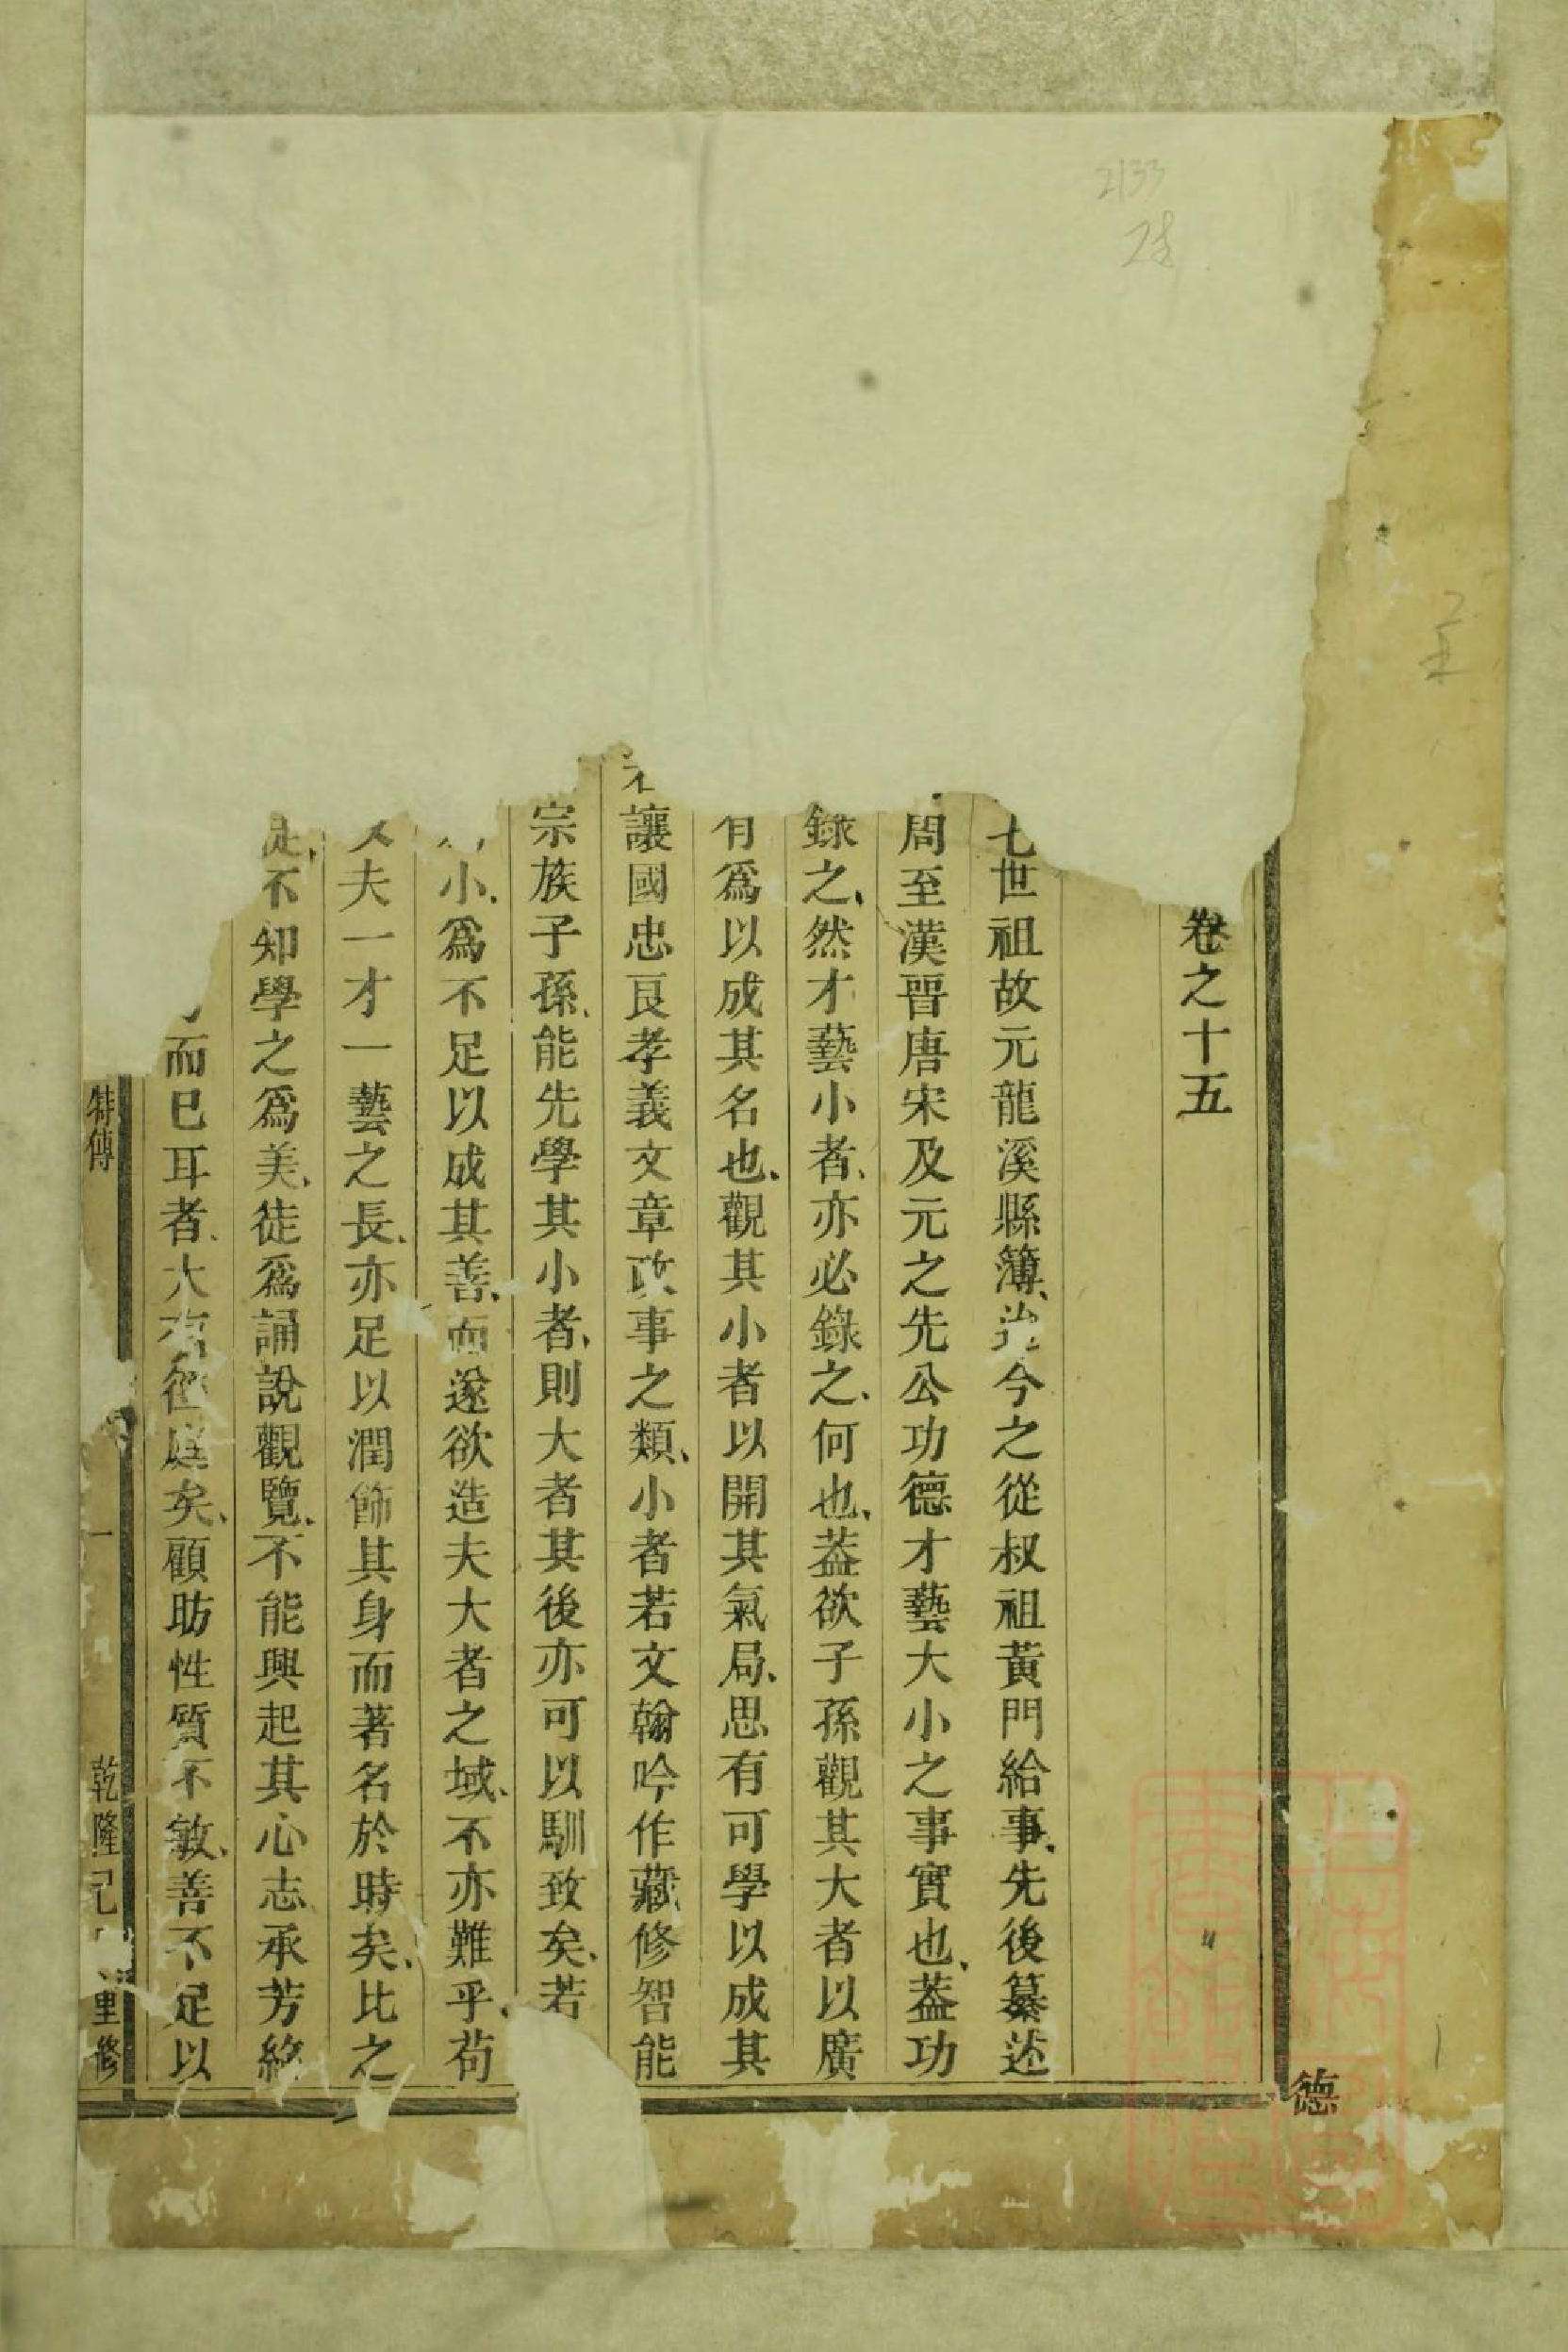 卷之十五
七世祖故元龍溪縣簿、今之從叔祖黃門給事、先後纂述
周至漢晉唐宋及元之先公功德才藝大小之事實也、葢功
錄之、然才藝小者、亦必錄之、何也、葢欲子孫觀其大者以廣
有爲以成其名也、觀其小者以開其氣局、思有可學以成其
讓國忠良孝義文章政事之類、小者若文翰吟作藏修智能
宗族子孫、能先學其小者、則大者其後亦可以馴致矣、若
小、爲不足以成其善、而遂欲造夫大者之域、不亦難乎、苟
夫一才一藝之長、亦足以潤飾其身而著名於時矣、比之
不知學之爲美、徒爲誦說觀覽、不能興起其心志、承芳終
而已耳者、大有徑庭矣、顧昉性質不敏、善不足以
特傳
一
乾隆己
重修
德
2133